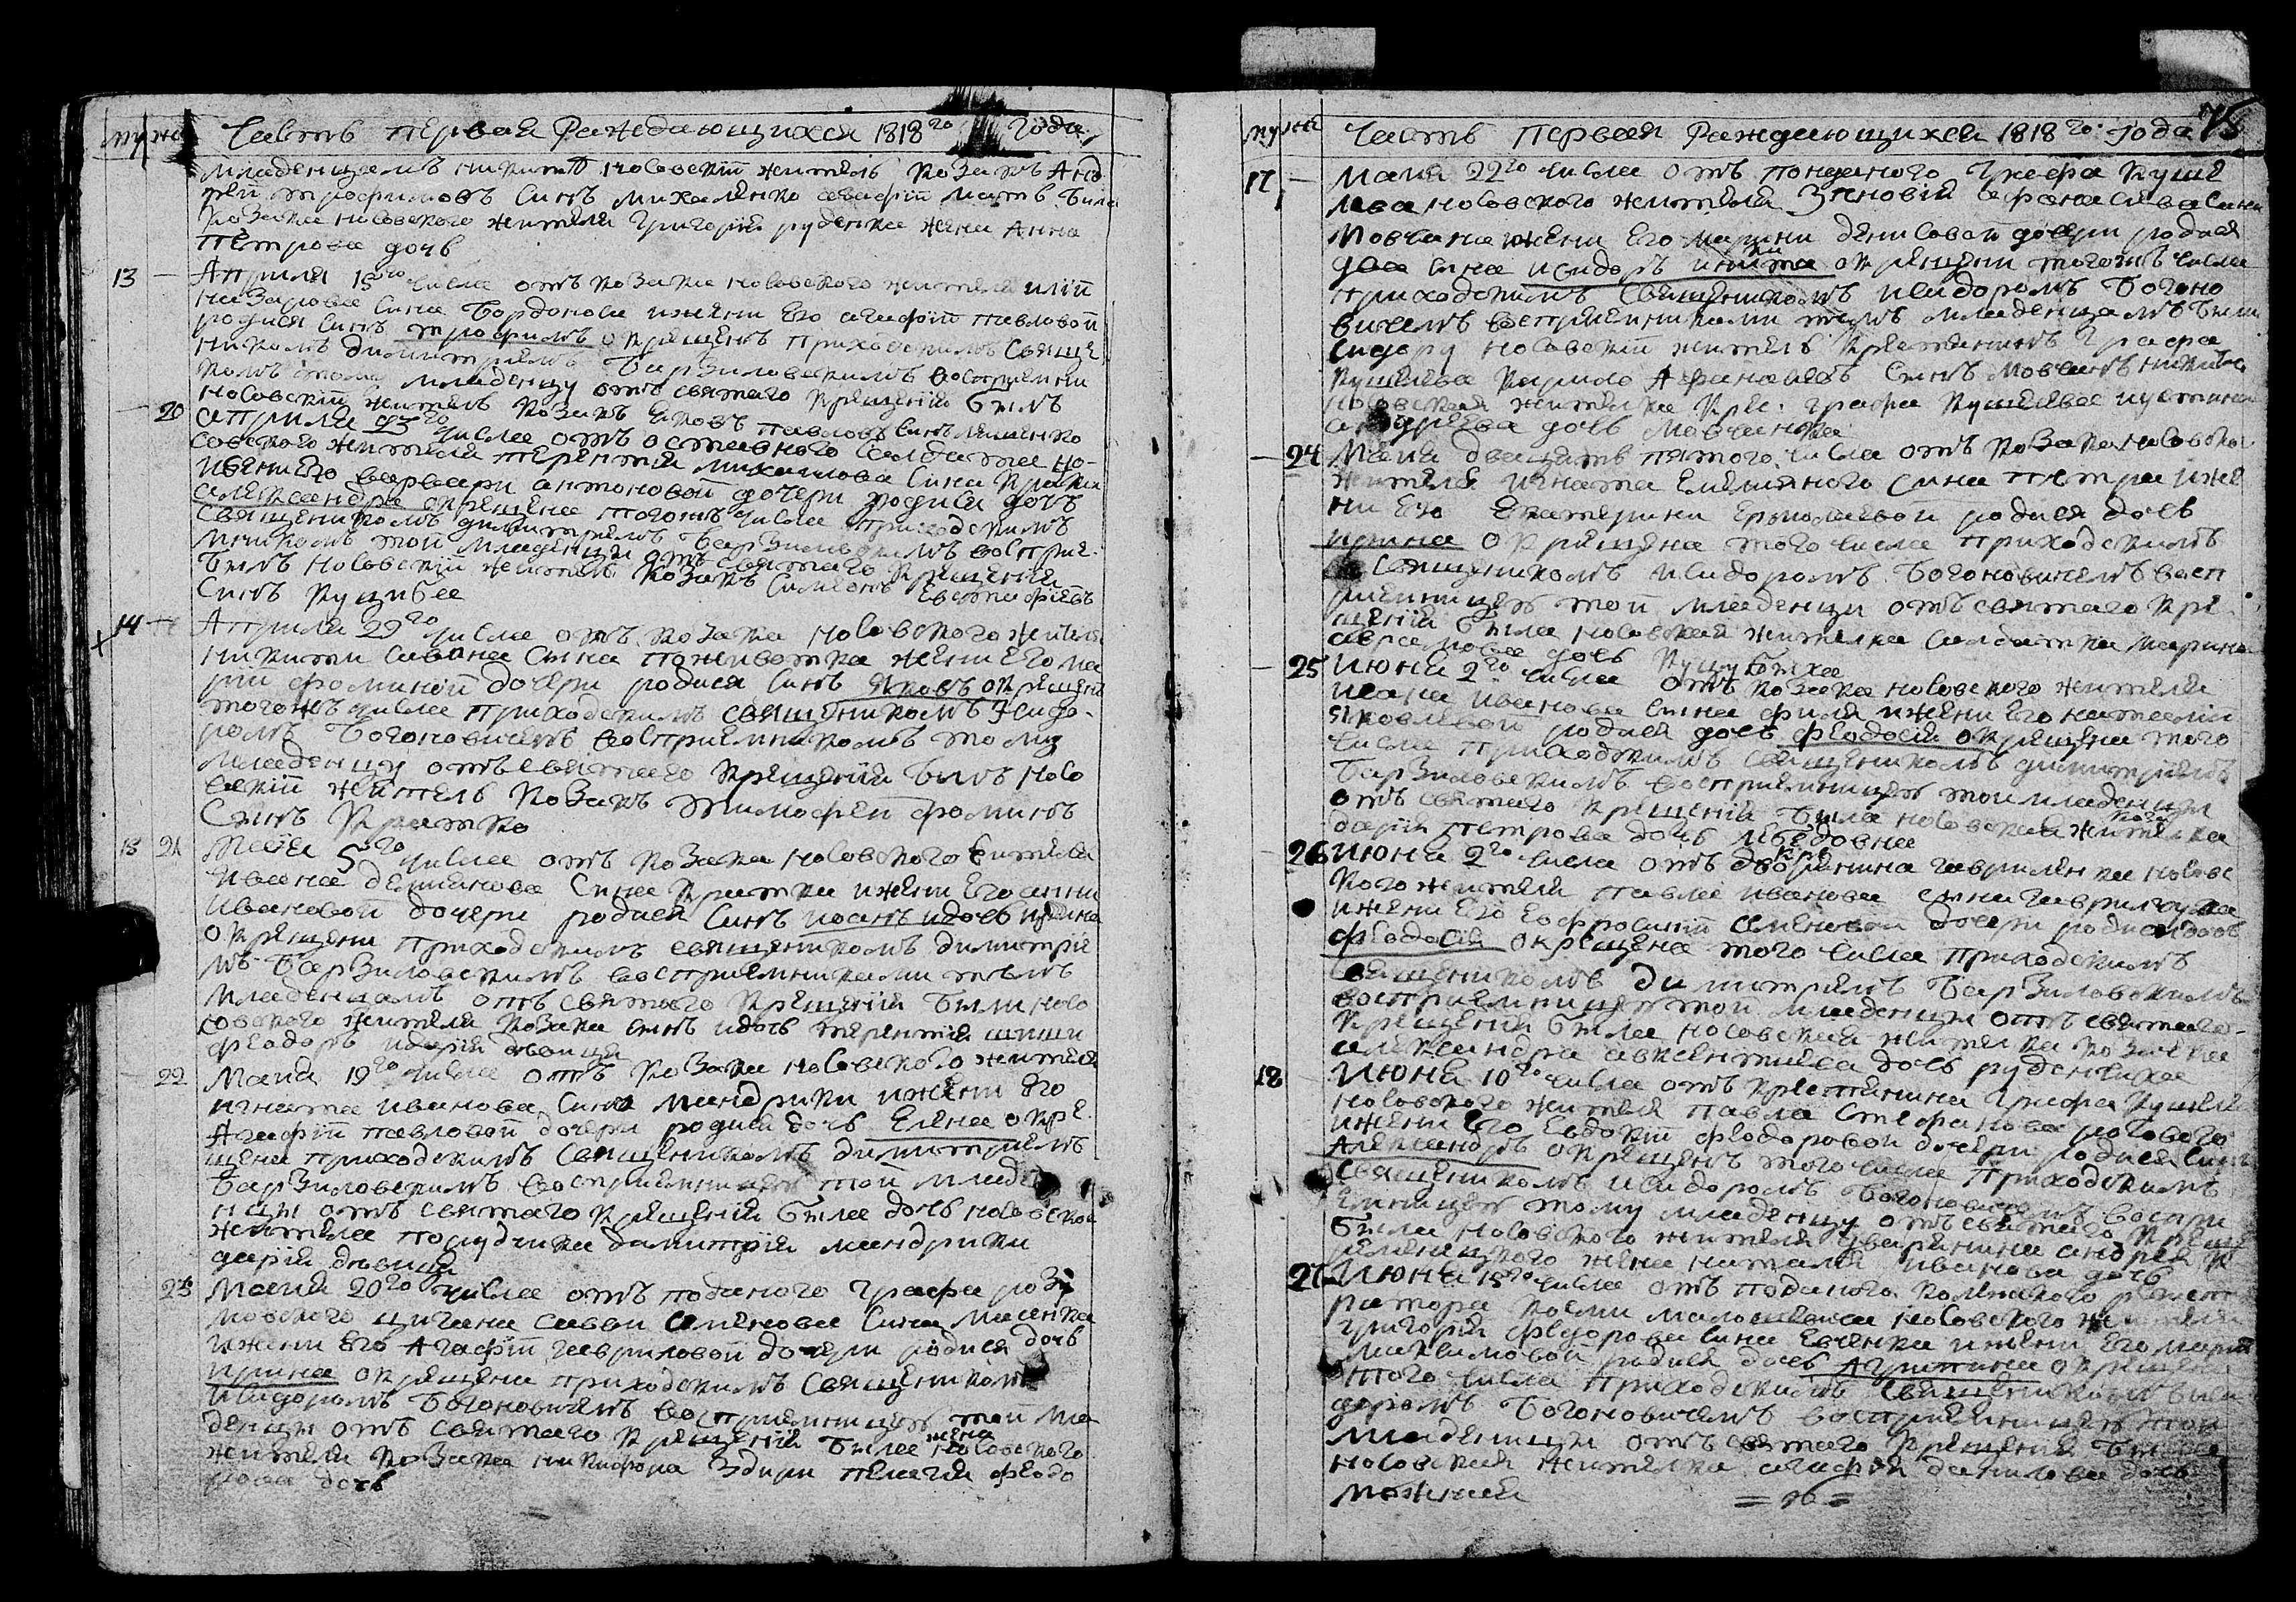 муж жен
Часть первая Раждающихся 1818го года
младенцамъ никитѣ носовскій житель козакъ Анд
рей трофимовъ Синъ михаленко агафіи мать била
козака носовского жителя григорія руденка жена Анна
петрова дочь
13 Априля 15го числа отъ козака носовского жителя иліи
назарова сина Бордоноса ижени его агафіи павловой
родися синъ трофимъ окрещенъ приходскимъ свяще
никомъ димитріемъ Барзиловскимъ восприемни
комъ тому младенцу отъ святого крещенія билъ
носовскій житель козакъ яковъ павловъ синъ ляшенко
20 априля 23го числа отъ оставного салдата но-
совского жителя терентія михаилова сина
ижени его варвари антоновой дочери родися дочь
александра окрещена тогожъ числа приходскимъ
священикомъ димитріемъ Барзиловскимъ восприе
мникомъ той младенци отъ святаго крещенія
билъ носовскій житель козакъ Симеонъ Евстафіевъ
Синъ куцибѣ
14 Априля 29го числа отъ козака носовского жителя
никити савина сина поживотка жени его ма
ріи фоминой дочери родися синъ яковъ окрещенъ
тогожъ числа приходскимъ священикомъ Исидо-
ромъ Богоновичемъ восприемникомъ тому
младенцу отъ святаго крещенія билъ носо
вскій житель козакъ тимофей фоминъ
Синъ Кратко
15 21 Маія 5го числа отъ козака носовского жителя
ивана демянова сина кратка ижени его анни
ивановой дочери родися синъ иоанъ идочь ирина
окрещени приходскимъ священикомъ димитріе
мъ Барзиловскимъ восприемниками тѣмъ
младенцамъ отъ святаго крещенія били носо
совского жителя козака синъ идочь терентія шиши
феодоръ идарія девица
22 Маия 19го числа отъ козака носовского жителя
игната иванова сина мандрики ижени его
Агафіи павловой дочери родися дочь Елена окре
щена приходскимъ священикомъ димитріемъ
Барзиловскимъ восприемницею той младе
нци отъ святаго крещенія била дочь носовского
жителя порудчика димитрія мандрики
дарія девица
23 Маия 20го числа отъ поданого графа розу
мовского цигана савви семенова сина
ижени его Агафіи гавриловой дочери родися дочь
ирина окрещена приходскимъ священикомъ
Исидоромъ Богоновичемъ восприемницею той мла
денци отъ святаго крещенія била жена носовского
жителя козака никифора Здири пелагея феодо
рова дочь
муж жен
Часть первая Раждающихся 1818го года 75
17 Маия 22го числа отъ поданого графа куше
лева носовского жителя Зѣновія афанасіева сина
мовчана ижени его марини денисовой дочери родися
два сина исидоръ иникита окрещени тогожъ числа
приходскимъ священикомъ исидоромъ Богоно
вичемъ восприемниками тѣмъ младенцамъ били
сидору носовскій житель крестянинъ графа
кушелева кирило Афанасіевъ синъ мовчанъ никитѣ
носовская жителка крес. графа кушелева иустиния
андрѣева дочь мовчанка
24 Маия двацать пятого числа отъ козака носовско
жителя игната емелянного сина петри ижѣ
ни его Екатерини ермолаевой родися дочь
ирина окрещена того числа приходскимъ
священикомъ исидоромъ Богоновичемъ восп
риемницею той младенци отъ святаго кре
щенія била носовская жителка салдатка марина
аврамова дочь куцубѣха
25 Июня 2го числа отъ козака носовского жителя
ивана иванова сина филя ижени его наталіи
яковлевой родися дочь феодосія окрещена того
числа приходскимъ священикомъ димитріемъ
Барзиловскимъ восприемницею той младенци
отъ святаго крещенія била носовская жителка коза
дарія петрова дочь лебедовна
26 Июня 2го числа отъ кре дворянина гавриленка носовс
кого жителя павла иванова сина гаврилчука
ижени его ефросиніи семеновой дочери родися дочь
феодосія окрещена того числа приходскимъ
священикомъ димитріемъ Барзиловскимъ
восприемницею той младенци отъ святаго
крещенія била носовская жителка козачка
александра авксентиева дочь руденчиха
18 Июня 10го числа отъ крестянина графа кушеле
носовского жителя павла стефанова рогового
ижени его Евдокіи феодоровой дочери родися синъ
Александръ окрещенъ того числа приходскимъ
священикомъ исидоромъ Богоновичемъ воспри
емницею тому младенцу отъ святаго креще
била носовского жителя дварянина андрея
жена наталія иванова дочь
27 Июня 15го числа отъ поданого
носовского жителя
григорія федорова сина Евченка ижени его маріи
максимовой родися дочь Агрипина окрещена
того числа приходскимъ священикомъ Иси
доромъ Богоновичемъ восприемницею той
младенци отъ святаго крещенія била
носовская жителка агафія данилова дочь
можная
= 16 =